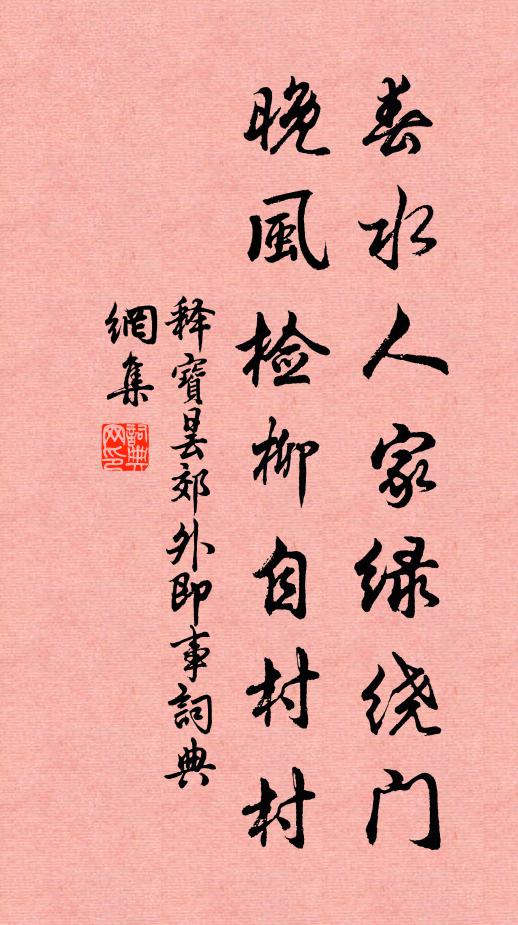 春水人家绿绕门
晚風检柳自村村
释寶昙郊外即事詞典
網集
詞典網印